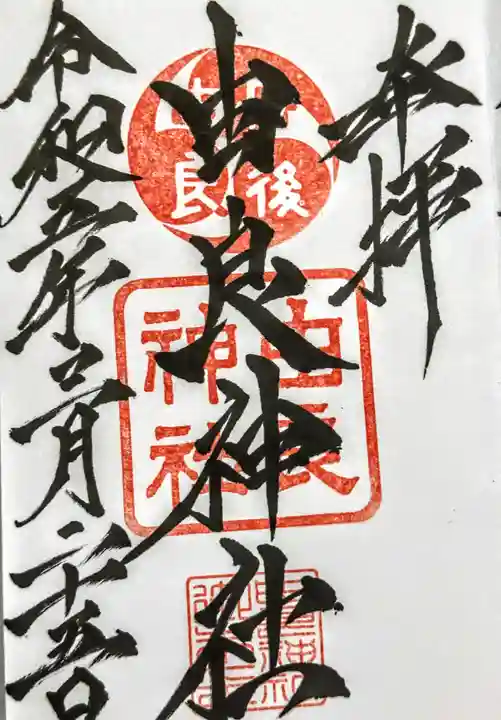 奉拝
由良神社
令和五年二月二十五日
丹後
由良
由良
神社